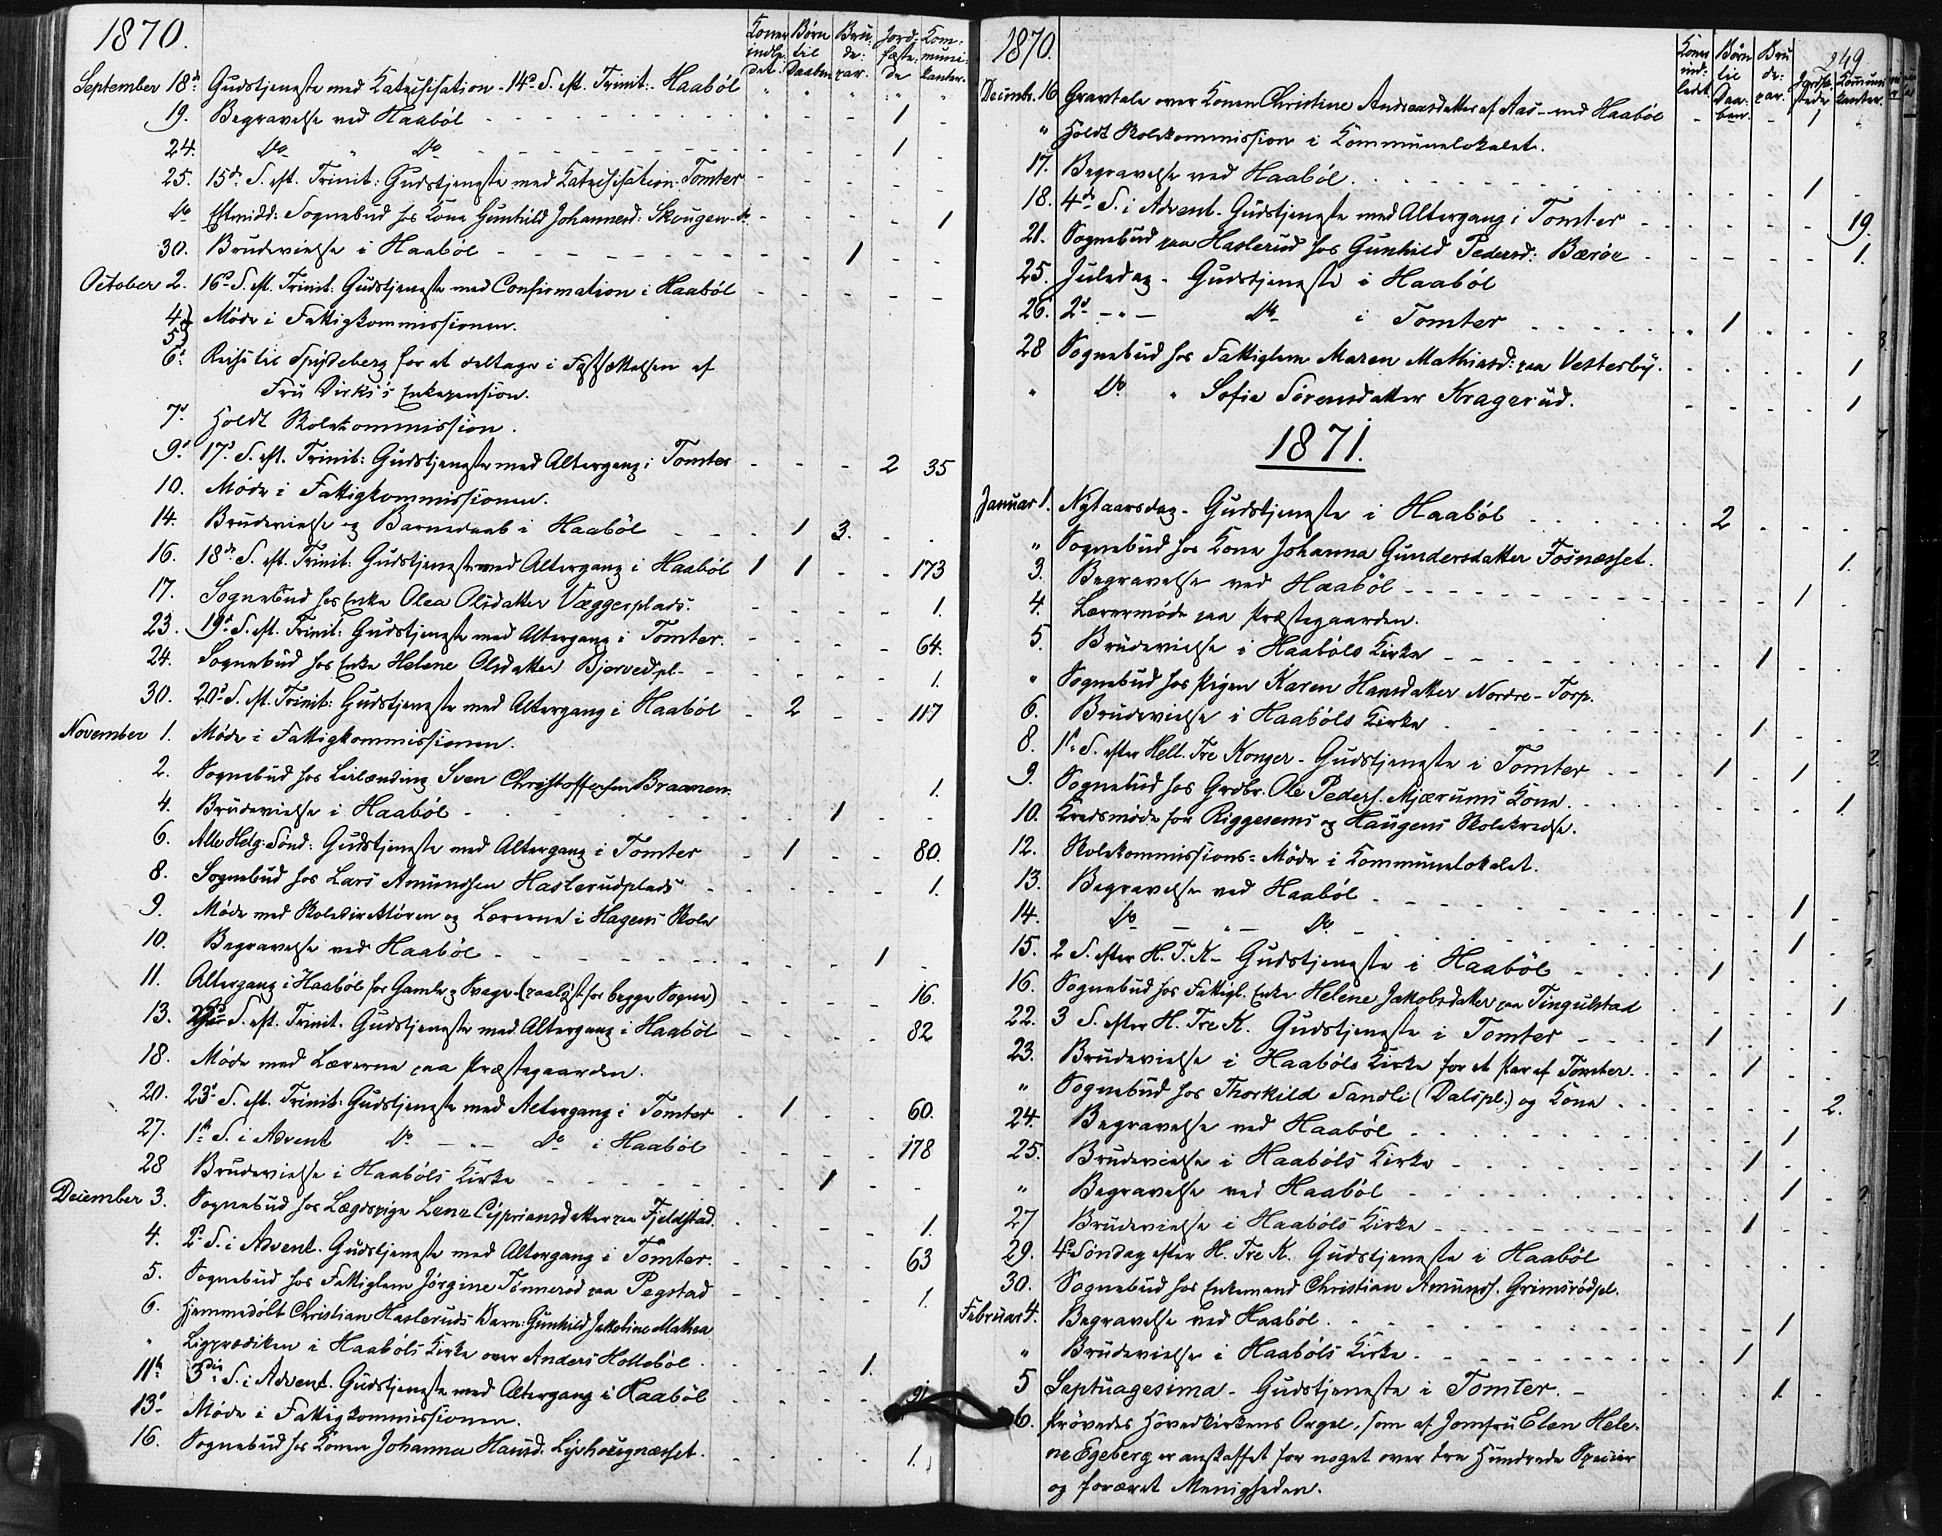 1870.
Koner indle: det. Børn til Daaben. Bru: de: par. Jord: fæste: de Kom: muni: kanter.
September 18de Gudstjeneste med Katekisation. 14de S. eft. Trinit: Haabøl
19. Begravelse ved Haabøl 1
24. Do " Do 1
25. 15de S. eft. Trinit: Gudstjeneste med Katekisation. Tomter
Do Eftmidd: Sognebud hos Kone Gunhild Johannesd: Skougen 1
30. Brudevielse i Haabøl 1
October 2. 16de S. eft. Trinit: Gudstjeneste med Confirmation i Haabøl
4 Møde i Fattigkommissionen.
5
6. Reise til Spydeberg for at deltage i Fastsættelsen af
Fru Dirks's Enkepension.
7. Holdt Skolekommission.
9. 17de S. eft. Trinit: Gudstjeneste med Altergang i Tomter 2 35
10. Møde i Fattigkommissionen.
14. Brudevielse og Barnedaab i Haabøl 1 3.
16. 18de S. eft. Trinit: Gudstjeneste med Altergang i Haabøl 1 1 173
17. Sognebud hos Enke Olea Olsdatter Væggerplads. 1.
23. 19de S. eft. Trinit: Gudstjeneste med Altergang i Tomter. 64.
24. Sognebud hos Enke Helene Olsdatter Bjørvedpl. 1.
30. 20de S. eft. Trinit: Gudstjeneste med Altergang i Haabøl 2 117
November 1. Møde i Fattigkommissionen.
2. Sognebud hos Leilænding Sven Christoffersen Braanen. 1.
4. Brudevielse i Haabøl 1
6. Alle Helg: Sønd: Gudstjeneste med Altergang i Tomter 1 80.
8. Sognebud hos Lars Amundsen Haslerudplads 1.
9. Møde med Skoledirektøren og Lærerne i Hagens Skole
10. Begravelse ved Haabøl 1
11. Altergang i Haabøl for Gamle og Svage (paalyst for begge Sogne) 16.
13. 22de S. eft. Trinit. Gudstjeneste med Altergang i Haabøl 82
18. Møde med Lærerne paa Præstegaarden.
20. 23de S. eft. Trinit: Gudstjeneste med Altergang i Tomter 1 60.
27. 1ste S. i Advent Do " Do i Haabøl 178
28 Brudevielse i Haabøls Kirke 1
December 3. Sognebud hos Lægdspige Lene Cypriansdatter paa Fjeldstad. 1.
4. 2de S. i Advent. Gudstjeneste med Altergang i Tomter. 63
5. Sognebud hos Fattiglem Jørgine Tønnerød paa Pegstad 1.
6. Hjemmedøbt Christian Haslerud's Barn: Gunhild Jakobine Mathea
" Ligprædiken i Haabøls Kirke over Anders Hollebøl 1.
11te 3die S. i Advent. Gudstjeneste med Altergang i Haabøl
13. Møde i Fattigkommissionen.
16. Sognebud hos Konen Johanna Hansd. 1.
1870.
249
Koner ind: ledet. Børn til Daa: ben. Bru de: par. Jordfæ stede Kommuni kanter.
Decembr. 16 Gravtale over Konen Christine Andreasdatter af Aas - ved Haabøl 1
" Holdt Skolekommission i Kommunelokalet.
17. Begravelse ved Haabøl. 1
18. 4de S. i Advent. Gudstjeneste med Altergang i Tomter 19.
21. Sognebud paa Haslerud hos Gunhild Pedersd: Bærøe 1.
25. Juledag - Gudstjeneste i Haabøl
26. 2d - " - Do i Tomter 1
28 Sognebud hos Fattiglem Maren Mathiasd: paa Vesterby. 1
" Do " Sofie Sørensdatter Kragerud. 1
1871.
Januar 1. Nytaarsdag - Gudstjeneste i Haabøl 2
" Sognebud hos Kone Johanna Gundersdatter Fosnæsset. 1.
3. Begravelse ved Haabøl 1
4. Lærermøde paa Præstegaarden.
5. Brudevielse i Haabøls Kirke 1
" Sognebud hos Pigen Karen Hansdatter Nordre-Torp.
6. Brudevielse i Haabøls Kirke 1
8. 1ste S. efter Hell. Tre Konger - Gudstjeneste i Tomter 1 1
9. Sognebud hos Grdbr. Ole Peders. Mjærums Kone. 1
10. Kredsmøde for Riggesems og Haugens Skolekredse.
12. Skolekommissions-Møde i Kommunelokalet.
13. Begravelse ved Haabøl 1
14. Do " Do 1
15. 2 S. efter H. T. K - Gudstjeneste i Haabøl 1
16. Sognebud hos Fattigl. Enke Helene Jakobsdatter paa Tingulstad 1
22. 3 S. efter H. Tre K. Gudstjeneste i Tomter 1
23. Brudevielse i Haabøls Kirke for et Par af Tomter. 1
" Sognebud hos Thorkild Sandli (Dalspl.) og Kone 2.
24. Begravelse ved Haabøl 1
25. Brudevielse i Haabøls Kirke 1
" Begravelse ved Haabøl 1
27 Brudevielse i Haabøls Kirke 1
29. 4de Søndag efter H. Tre K. Gudstjeneste i Haabøl
30. Sognebud hos Enkemand Christian Amunds. Grimsrødpl.
Februar 4. Begravelse ved Haabøl. 1
" Brudevielse i Haabøls Kirke. 1
5 Septuagesima - Gudstjeneste i Tomter. 1.
6. Prøvedes Hovedkirkens Orgel, som af Jomfru Elen Hele-
ne Egeberg er anskaffet for noget over tre Hundrede Specier
og foræret Menigheden.